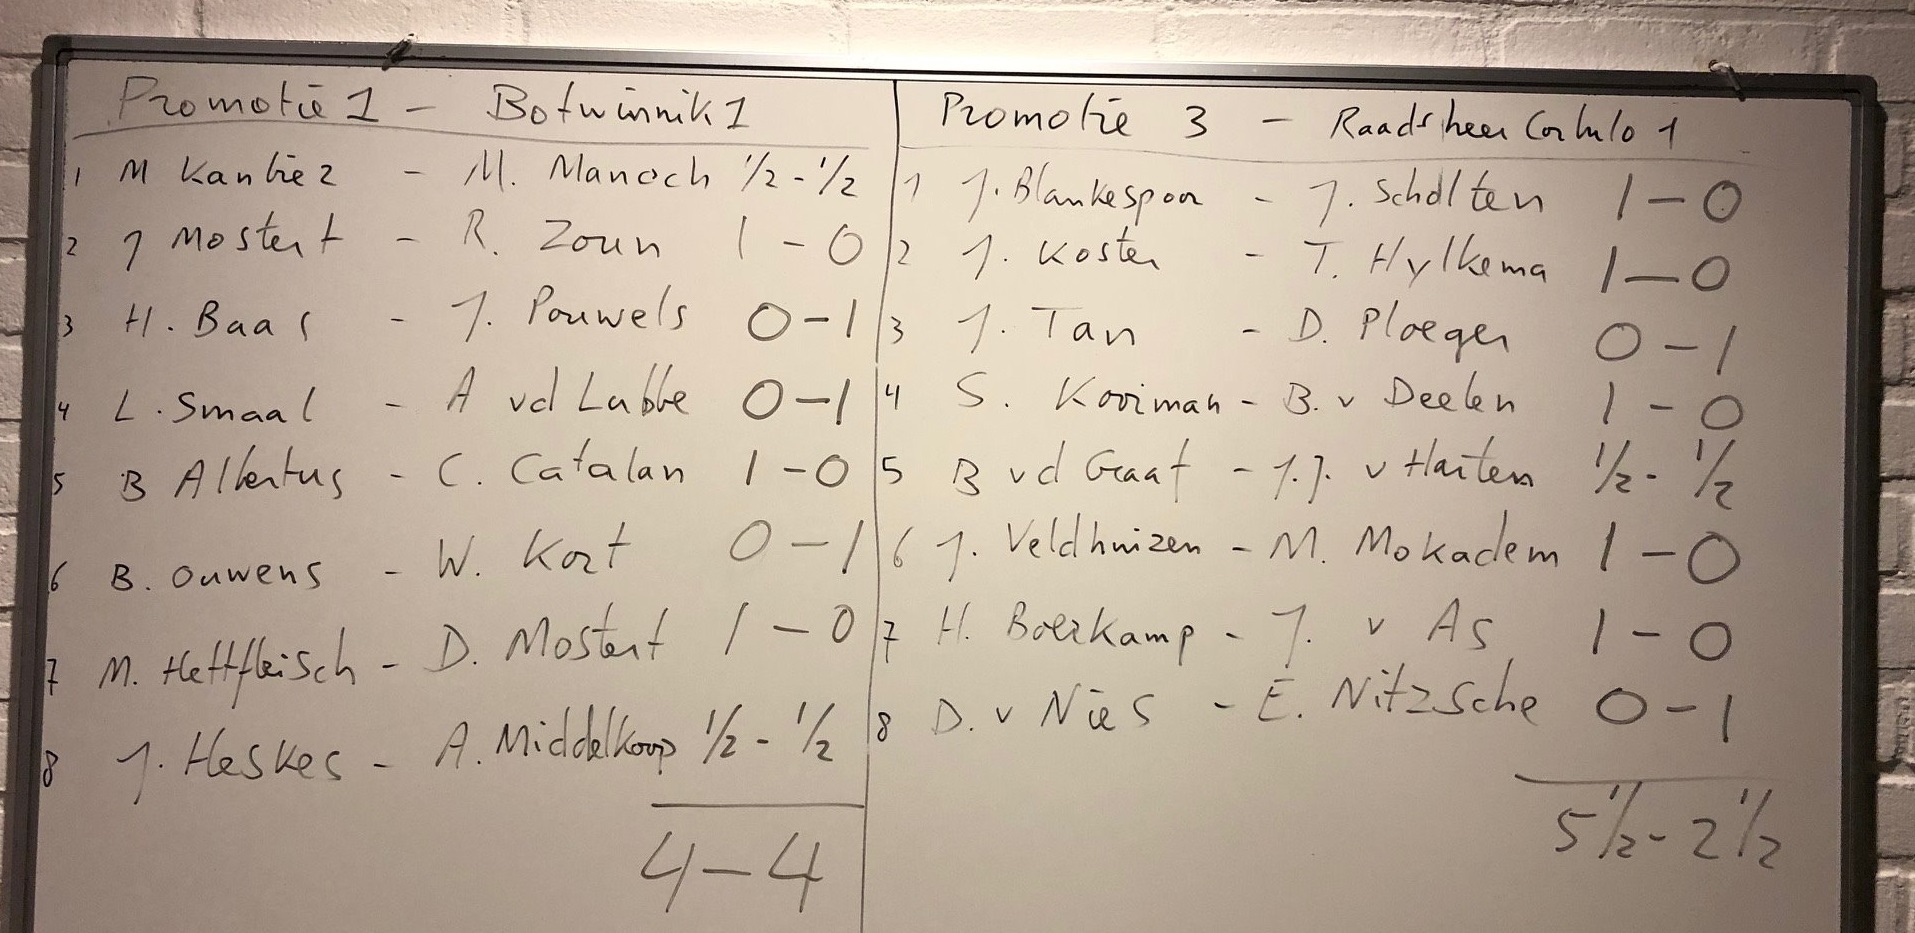 Promotie 1 - Botwinnik 1
1 M Kantiez - M. Manoch 1/2 - 1/2
2 J Mostert - R. Zoun 1 - 0
3 H. Baas - J. Pouwels 0 - 1
4 L. Smaal - A vd Lubbe 0 - 1
5 B Albertus - C. Catalan 1 - 0
6 B. Ouwens - W. Kort 0 - 1
7 M. Hettfleisch - D. Mostert 1 - 0
8 J. Heskes - A. Middelkoop 1/2 - 1/2
4 - 4
Promotie 3 - Raadsheer Corbulo 1
1 J. Blankespoor - J. Scholten 1 - 0
2 J. Koster - T. Hylkema 1 - 0
3 J. Tan - D. Ploeger 0 - 1
4 S. Kooiman - B. v Deelen 1 - 0
5 B vd Graaf - J.J. v Harten 1/2 - 1/2
6 J. Veldhuizen - M. Mokadem 1 - 0
7 H. Boerkamp - J. v As 1 - 0
8 D. v Nies - E. Nitzsche 0 - 1
5 1/2 - 2 1/2